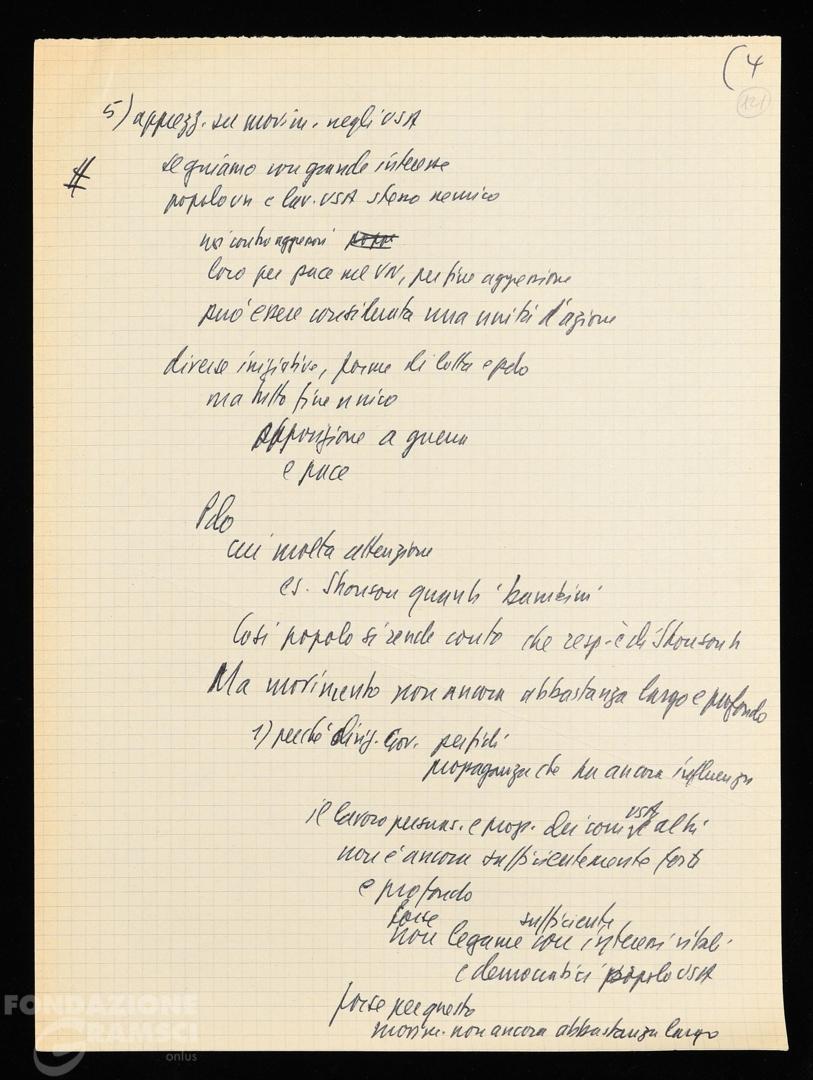 (4
(121)
5) apprezz. su movim. negli USA
# seguiamo con grande interesse
popolo VN e lav. USA stesso nemico
noi contro aggressori
loro per pace nel VN, per fine aggressione
può essere considerata una unità d'azione
diverse iniziative, forme di lotta e pdo
ma tutto fine unico
opposizione a guerra
e pace
Pdo
cui molta attenzione
es. Jhonson quanti bambini
Così popolo si rende conto che resp. è di Jhonson
Ma movimento non ancora abbastanza largo e profondo
1) perché dirig. Gov. perfidi
propaganda che ha ancora influenza
il lavoro persuas. e prop. dei com. USA e altri
non è ancora sufficientemente forte
e profondo
forse sufficiente
non legame con interessi vitali
e democratici popolo USA
forse per questo
movim. non ancora abbastanza largo
FONDAZIONE
GRAMSCI
onlus